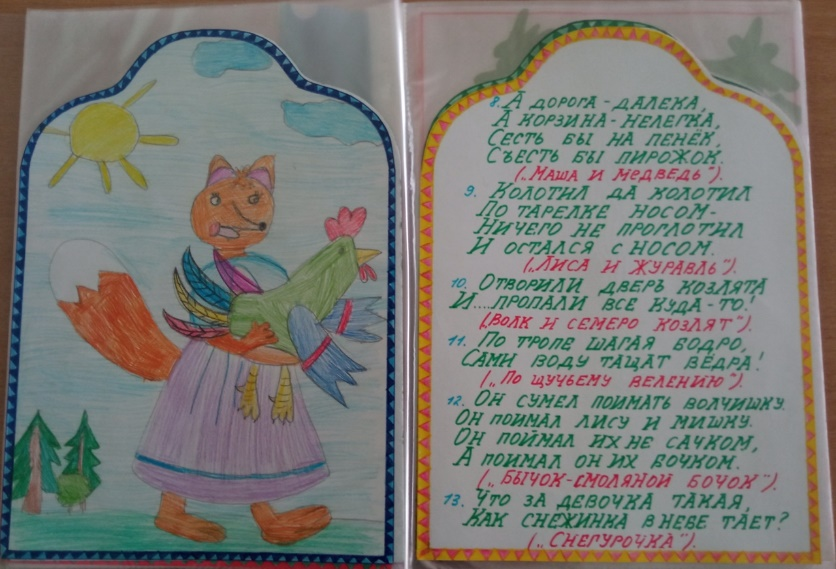 8. А ДОРОГА - ДАЛЕКА,
А КОРЗИНА - НЕЛЕГКА,
СЕСТЬ БЫ НА ПЕНЁК,
СЪЕСТЬ БЫ ПИРОЖОК.
(„МАША И МЕДВЕДЬ").
9. КОЛОТИЛ ДА КОЛОТИЛ
ПО ТАРЕЛКЕ НОСОМ -
НИЧЕГО НЕ ПРОГЛОТИЛ
И ОСТАЛСЯ С НОСОМ.
(„ЛИСА И ЖУРАВЛЬ").
10. ОТВОРИЛИ ДВЕРЬ КОЗЛЯТА
И.... ПРОПАЛИ ВСЕ КУДА-ТО!
(„ВОЛК И СЕМЕРО КОЗЛЯТ").
11. ПО ТРОПЕ ШАГАЯ БОДРО,
САМИ ВОДУ ТАЩАТ ВЁДРА!
(„ПО ЩУЧЬЕМУ ВЕЛЕНИЮ").
12. ОН СУМЕЛ ПОИМАТЬ ВОЛЧИШКУ.
ОН ПОИМАЛ ЛИСУ И МИШКУ.
ОН ПОЙМАЛ ИХ НЕ САЧКОМ,
А ПОИМАЛ ОН ИХ БОЧКОМ.
(„БЫЧОК-СМОЛЯНОЙ БОЧОК").
13. ЧТО ЗА ДЕВОЧКА ТАКАЯ,
КАК СНЕЖИНКА В НЕБЕ ТАЕТ?
(„СНЕГУРОЧКА").